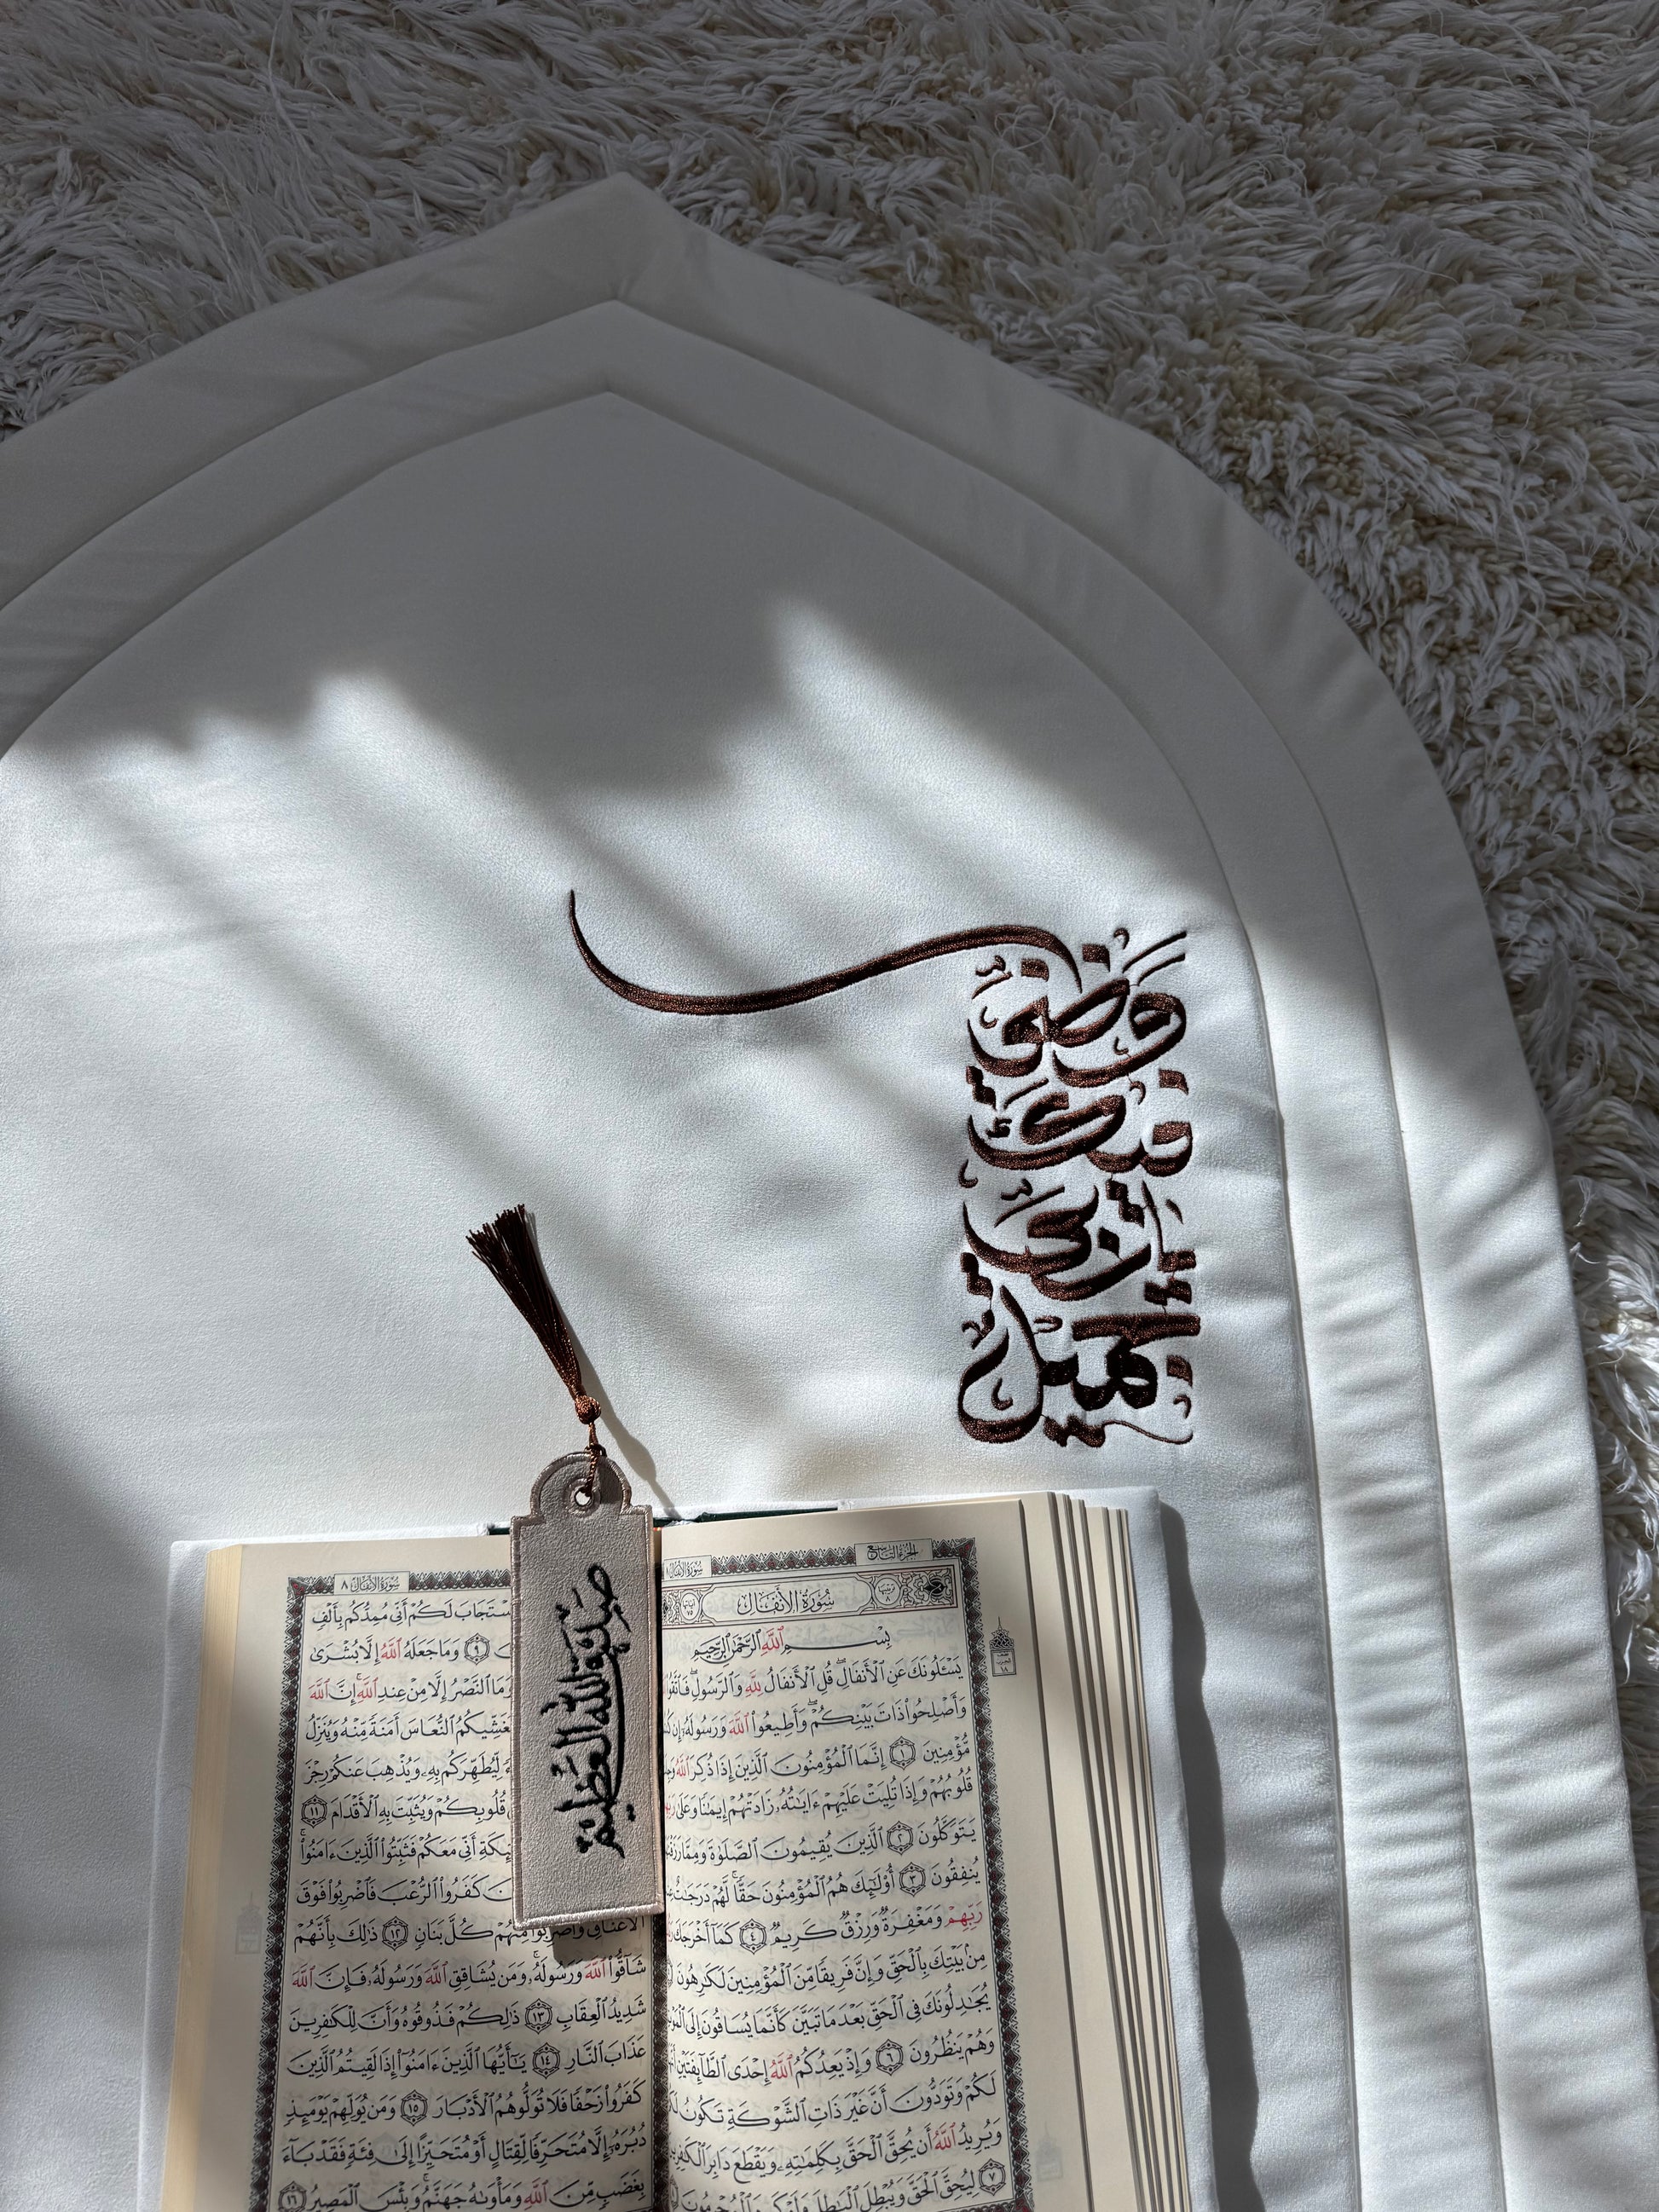 وَظَنِّي
فِيكَ
يَا رَبِّي
جَمِيلٌ
صَدَقَ اللهُ العَظِيمُ
الجُزْءُ التَّاسِعُ
سُورَةُ الأَنْفَالِ
بِسْمِ اللَّهِ الرَّحْمَٰنِ الرَّحِيمِ
يَسْـَٔلُونَكَ عَنِ ٱلْأَنفَالِ ۖ قُلِ ٱلْأَنفَالُ لِلَّهِ وَٱلرَّسُولِ ۖ
وَأَصْلِحُوا۟ ذَاتَ بَيْنِكُمْ ۖ وَأَطِيعُوا۟ ٱللَّهَ وَرَسُولَهُۥٓ إِن
مُّؤْمِنِينَ ١ إِنَّمَا ٱلْمُؤْمِنُونَ ٱلَّذِينَ إِذَا ذُكِرَ ٱللَّهُ
قُلُوبُهُمْ وَإِذَا تُلِيَتْ عَلَيْهِمْ ءَايَـٰتُهُۥ زَادَتْهُمْ إِيمَـٰنًا وَعَلَىٰ
يَتَوَكَّلُونَ ٢ ٱلَّذِينَ يُقِيمُونَ ٱلصَّلَوٰةَ وَمِمَّا
يُنفِقُونَ ٣ أُو۟لَـٰٓئِكَ هُمُ ٱلْمُؤْمِنُونَ حَقًّا ۚ لَّهُمْ دَرَجَـٰتٌ
رَبِّهِمْ وَمَغْفِرَةٌ وَرِزْقٌ كَرِيمٌ ٤ كَمَآ أَخْرَجَكَ
مِنۢ بَيْتِكَ بِٱلْحَقِّ وَإِنَّ فَرِيقًا مِّنَ ٱلْمُؤْمِنِينَ لَكَـٰرِهُونَ
يُجَـٰدِلُونَكَ فِى ٱلْحَقِّ بَعْدَ مَا تَبَيَّنَ كَأَنَّمَا يُسَاقُونَ إِلَى
وَهُمْ يَنظُرُونَ ٦ وَإِذْ يَعِدُكُمُ ٱللَّهُ إِحْدَى ٱلطَّآئِفَتَيْنِ
لَكُمْ وَتَوَدُّونَ أَنَّ غَيْرَ ذَاتِ ٱلشَّوْكَةِ تَكُونُ
وَيُرِيدُ ٱللَّهُ أَن يُحِقَّ ٱلْحَقَّ بِكَلِمَـٰتِهِۦ وَيَقْطَعَ دَابِرَ
٧ لِيُحِقَّ ٱلْحَقَّ وَيُبْطِلَ ٱلْبَـٰطِلَ وَلَوْ كَرِهَ ٱلْمُجْرِمُونَ
سُورَةُ الأَنْفَالِ ٨
لَكُمْ أَنِّى مُمِدُّكُم بِأَلْفٍ
٩ وَمَا جَعَلَهُ ٱللَّهُ إِلَّا بُشْرَىٰ
وَمَا ٱلنَّصْرُ إِلَّا مِنْ عِندِ ٱللَّهِ ۚ إِنَّ ٱللَّهَ
ٱلنُّعَاسَ أَمَنَةً مِّنْهُ وَيُنَزِّلُ
لِّيُطَهِّرَكُم بِهِۦ وَيُذْهِبَ عَنكُمْ رِجْزَ
قُلُوبِكُمْ وَيُثَبِّتَ بِهِ ٱلْأَقْدَامَ ١١
أَنِّى مَعَكُمْ فَثَبِّتُوا۟ ٱلَّذِينَ ءَامَنُوا۟ ۚ
كَفَرُوا۟ ٱلرُّعْبَ فَٱضْرِبُوا۟ فَوْقَ
ٱلْأَعْنَاقِ وَٱضْرِبُوا۟ مِنْهُمْ كُلَّ بَنَانٍ ١٢ ذَٰلِكَ بِأَنَّهُمْ
شَآقُّوا۟ ٱللَّهَ وَرَسُولَهُۥ ۚ وَمَن يُشَاقِقِ ٱللَّهَ وَرَسُولَهُۥ فَإِنَّ ٱللَّهَ
شَدِيدُ ٱلْعِقَابِ ١٣ ذَٰلِكُمْ فَذُوقُوهُ وَأَنَّ لِلْكَـٰفِرِينَ
عَذَابَ ٱلنَّارِ ١٤ يَـٰٓأَيُّهَا ٱلَّذِينَ ءَامَنُوٓا۟ إِذَا لَقِيتُمُ ٱلَّذِينَ
كَفَرُوا۟ زَحْفًا فَلَا تُوَلُّوهُمُ ٱلْأَدْبَارَ ١٥ وَمَن يُوَلِّهِمْ يَوْمَئِذٍ
دُبُرَهُۥٓ إِلَّا مُتَحَرِّفًا لِّقِتَالٍ أَوْ مُتَحَيِّزًا إِلَىٰ فِئَةٍ فَقَدْ بَآءَ
بِغَضَبٍ مِّنَ ٱللَّهِ وَمَأْوَىٰهُ جَهَنَّمُ ۖ وَبِئْسَ ٱلْمَصِيرُ ١٦